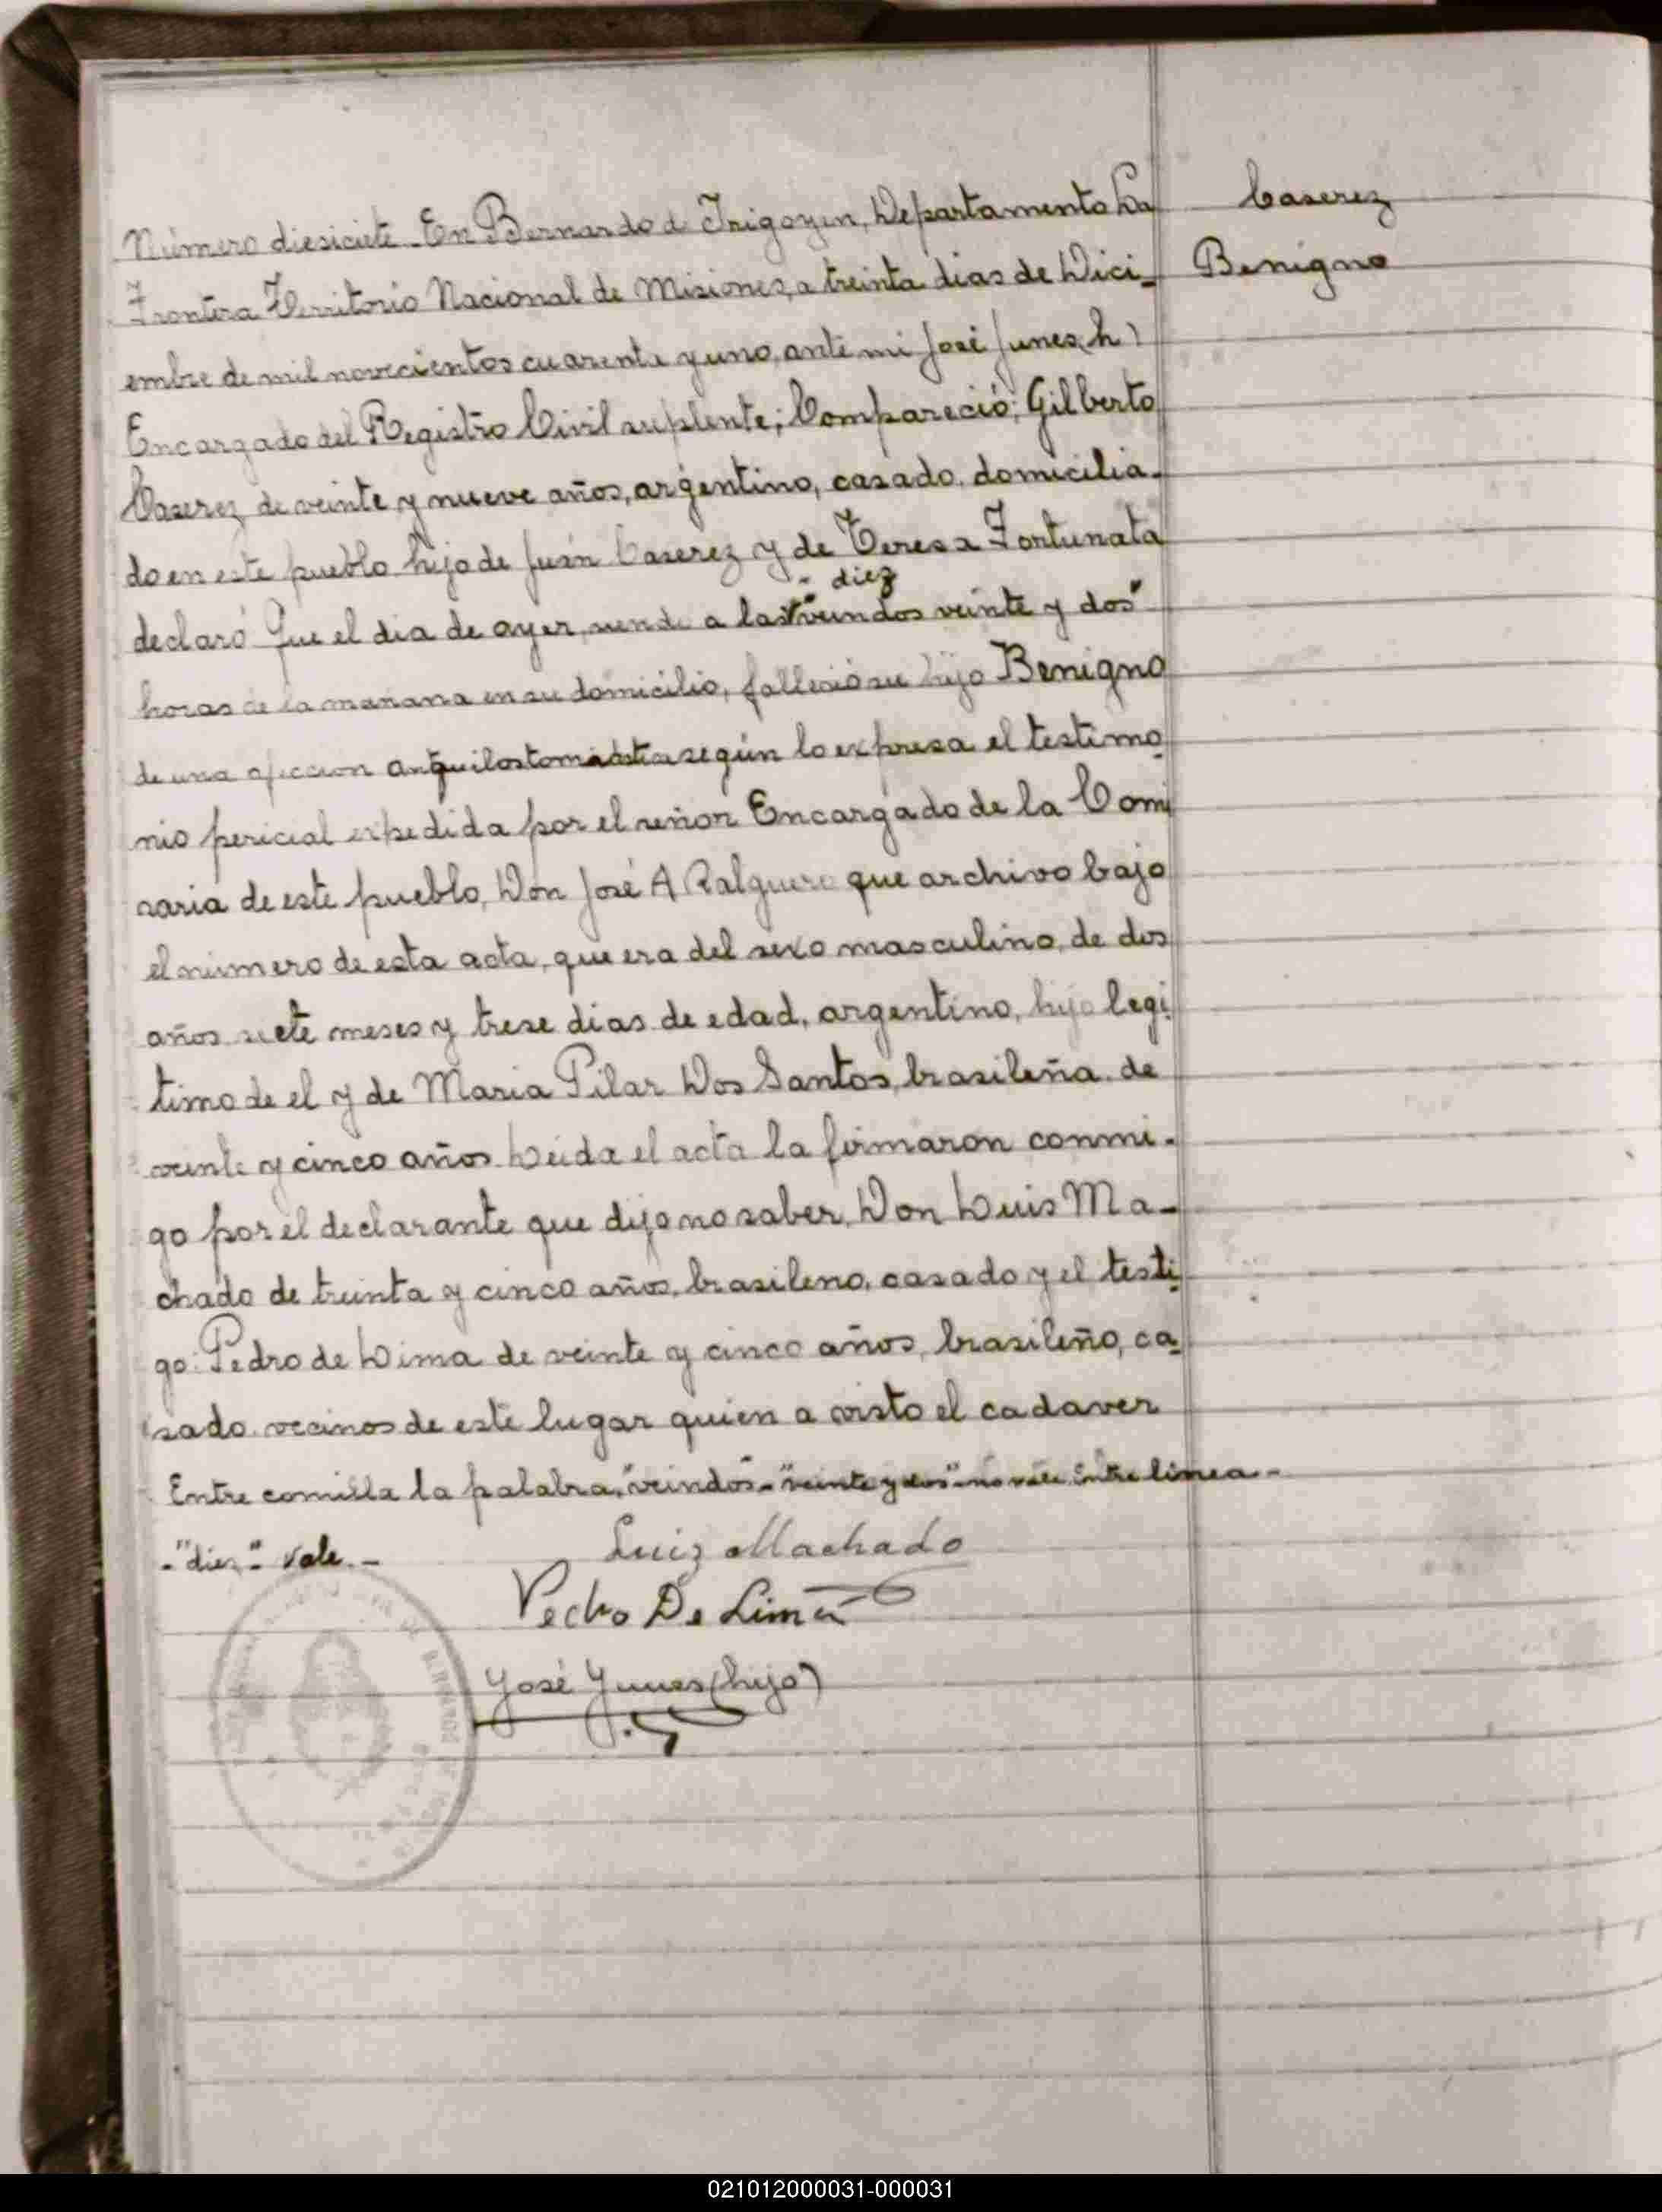 Caserez
Benigno
Número diesiciete. En Bernardo de Irigoyen, Departamento La
Frontera Territorio Nacional de Misiones, a treinta dias de Dici-
embre de mil novecientos cuarenta y uno, ante mi José Junes (h)
Encargado del Registro Civil suplente; Compareció; Gilberto
Caserez de veinte y nueve años, argentino, casado, domicilia-
do en este pueblo, hijo de Juán Caserez y de Teresa Fortunata
declaró Que el dia de ayer, siendo a las "veindos veinte y dos"
- diez
horas de la mañana en su domicilio, falleció su hijo Benigno
de una afeccion según lo expresa el testimo
nio pericial expedida por el señor Encargado de la Comi
saria de este pueblo, Don José A que archivo bajo
el número de esta acta, que era del sexo masculino, de dos
años siete meses y trese dias de edad, argentino, hijo legi
timo de el y de Maria Pilar Dos Santos, brasileña de
veinte y cinco años. Leida el acta la firmaron conmi-
go por el declarante que dijo no saber, Don Luis Ma-
chado de treinta y cinco años, brasileno, casado y el testi
go: Pedro de Lima de veinte y cinco años, brasileño, ca
sado, vecinos de este lugar quien a visto el cadaver
Entre comilla la palabra, "veindos" - "veinte y dos" - no vale. Entre linea -
- "diez" - Vale. -
Luiz Machado
Pedro De Lima
José Junes (hijo)
021012000031-000031